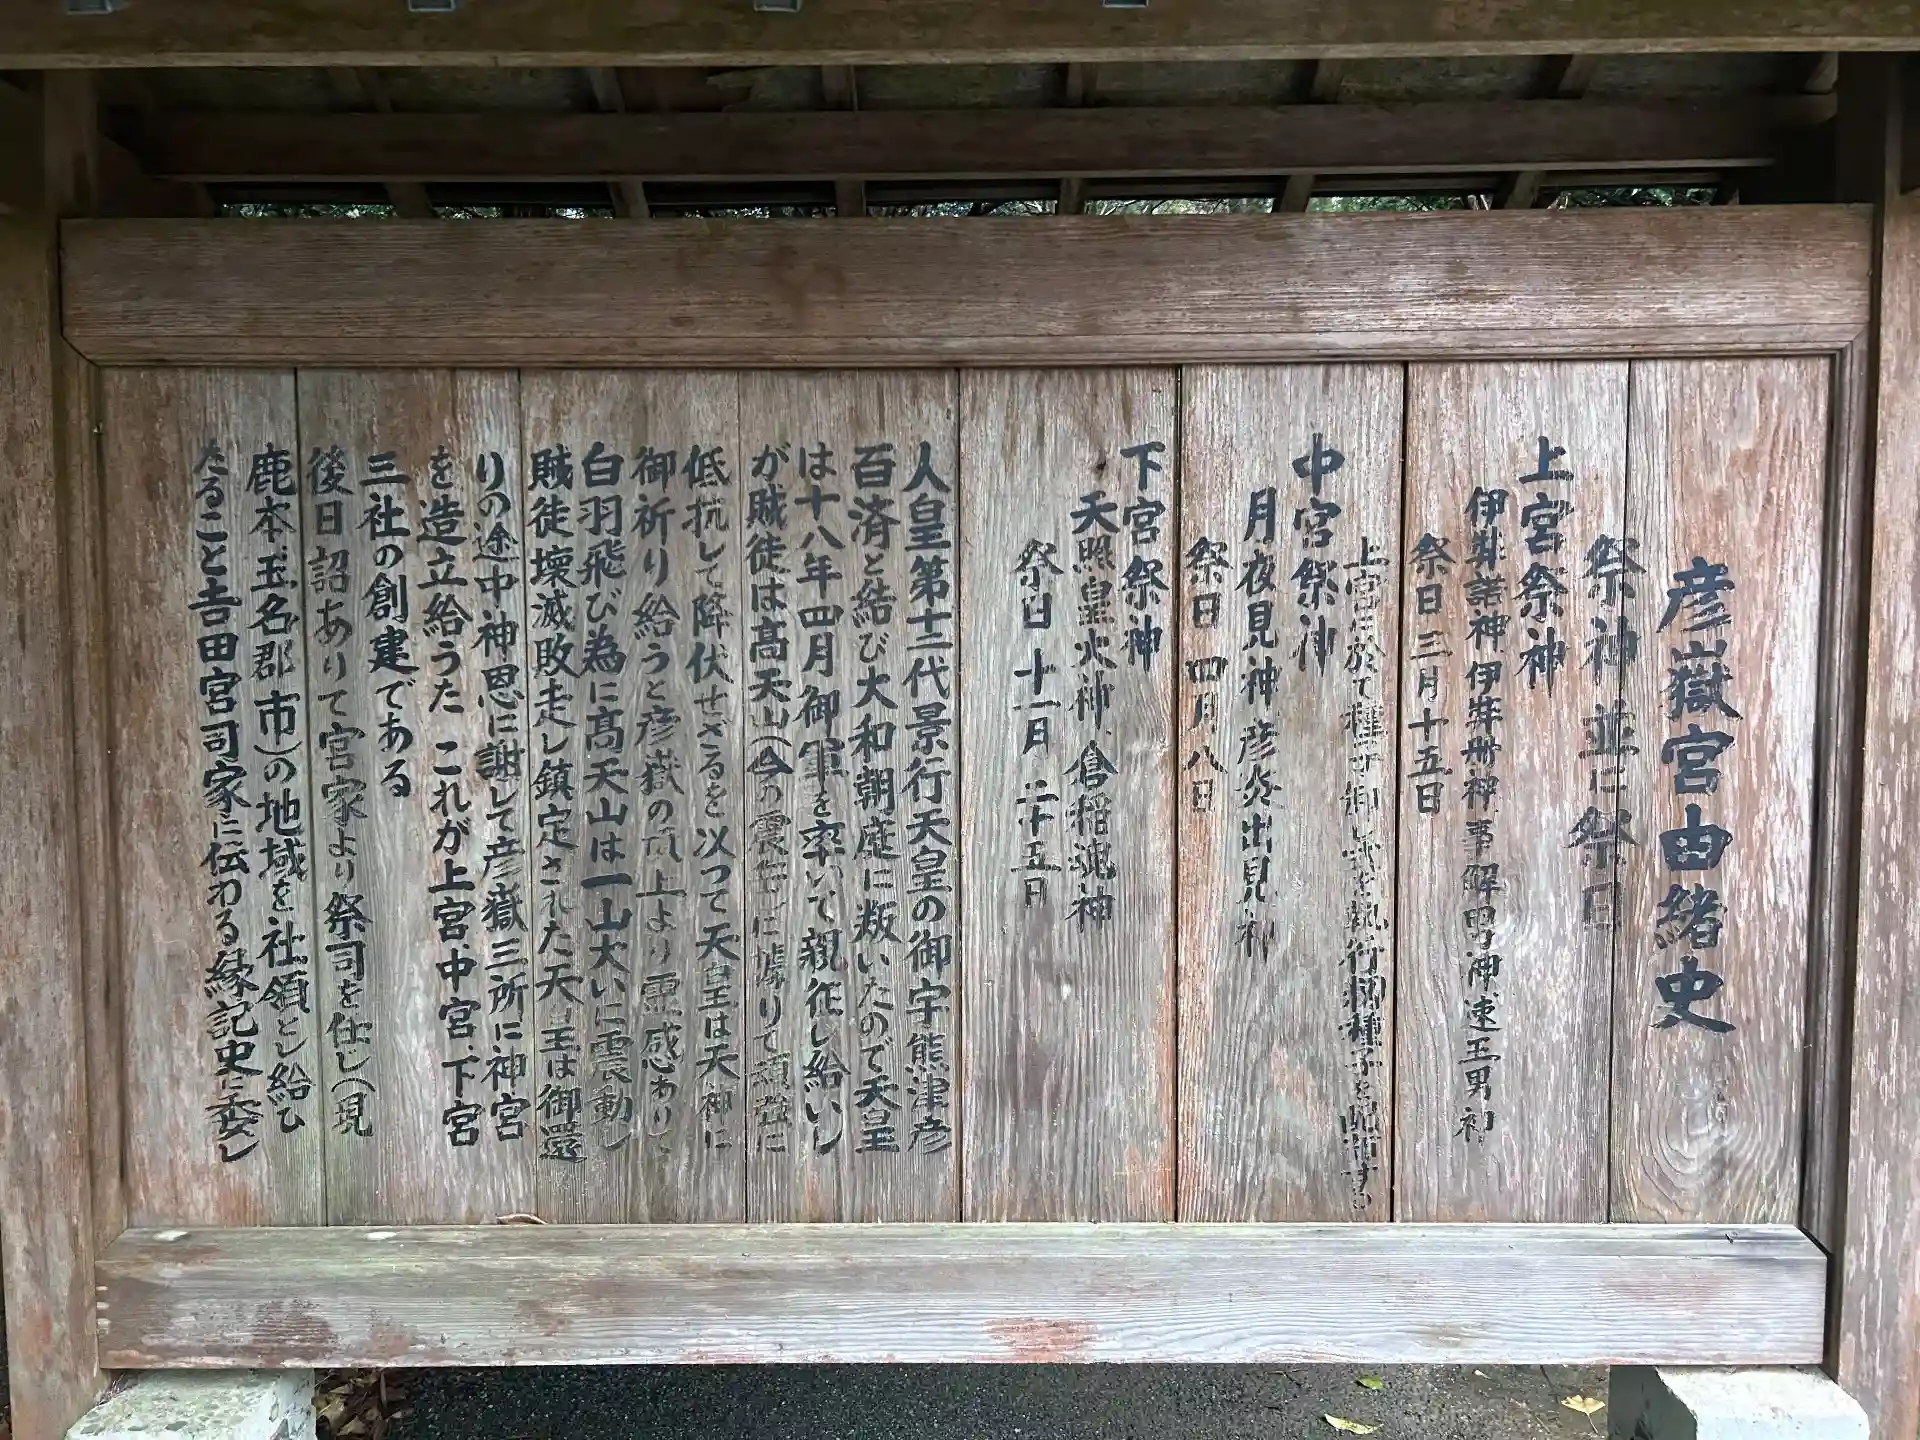 彦嶽宮由緒史
祭神並に祭日
上宮祭神
伊弉諾神伊弉冊神事解男神速玉男神
祭日三月十五日
上宮に於て種子御
中宮祭神
月夜見神彦火出見神
祭日四月八日
下宮祭神
天照皇大神倉稲魂神
祭日十一月二十五日
人皇第十二代景行天皇の御宇熊津彦
百済と結び大和朝庭に叛いたので天皇
は十八年四月御軍を率いて親征し給いし
が賊徒は高天山(今の震岳)に據りて頑強に
低抗して降伏せざるを以つて天皇は天神に
御祈り給うと彦嶽の頂上より霊感ありて
白羽飛び為に高天山は一山大いに震動し
賊徒壊滅敗走し鎮定された天皇は御還
りの途中神恩に謝して彦嶽三所に神宮
を造立給うた これが上宮、中宮、下宮
三社の創建である
後日詔ありて宮家より祭司を任じ(現
鹿本玉名郡市)の地域を社領とし給ひ
たること吉田宮司家に伝わる縁記史に委し